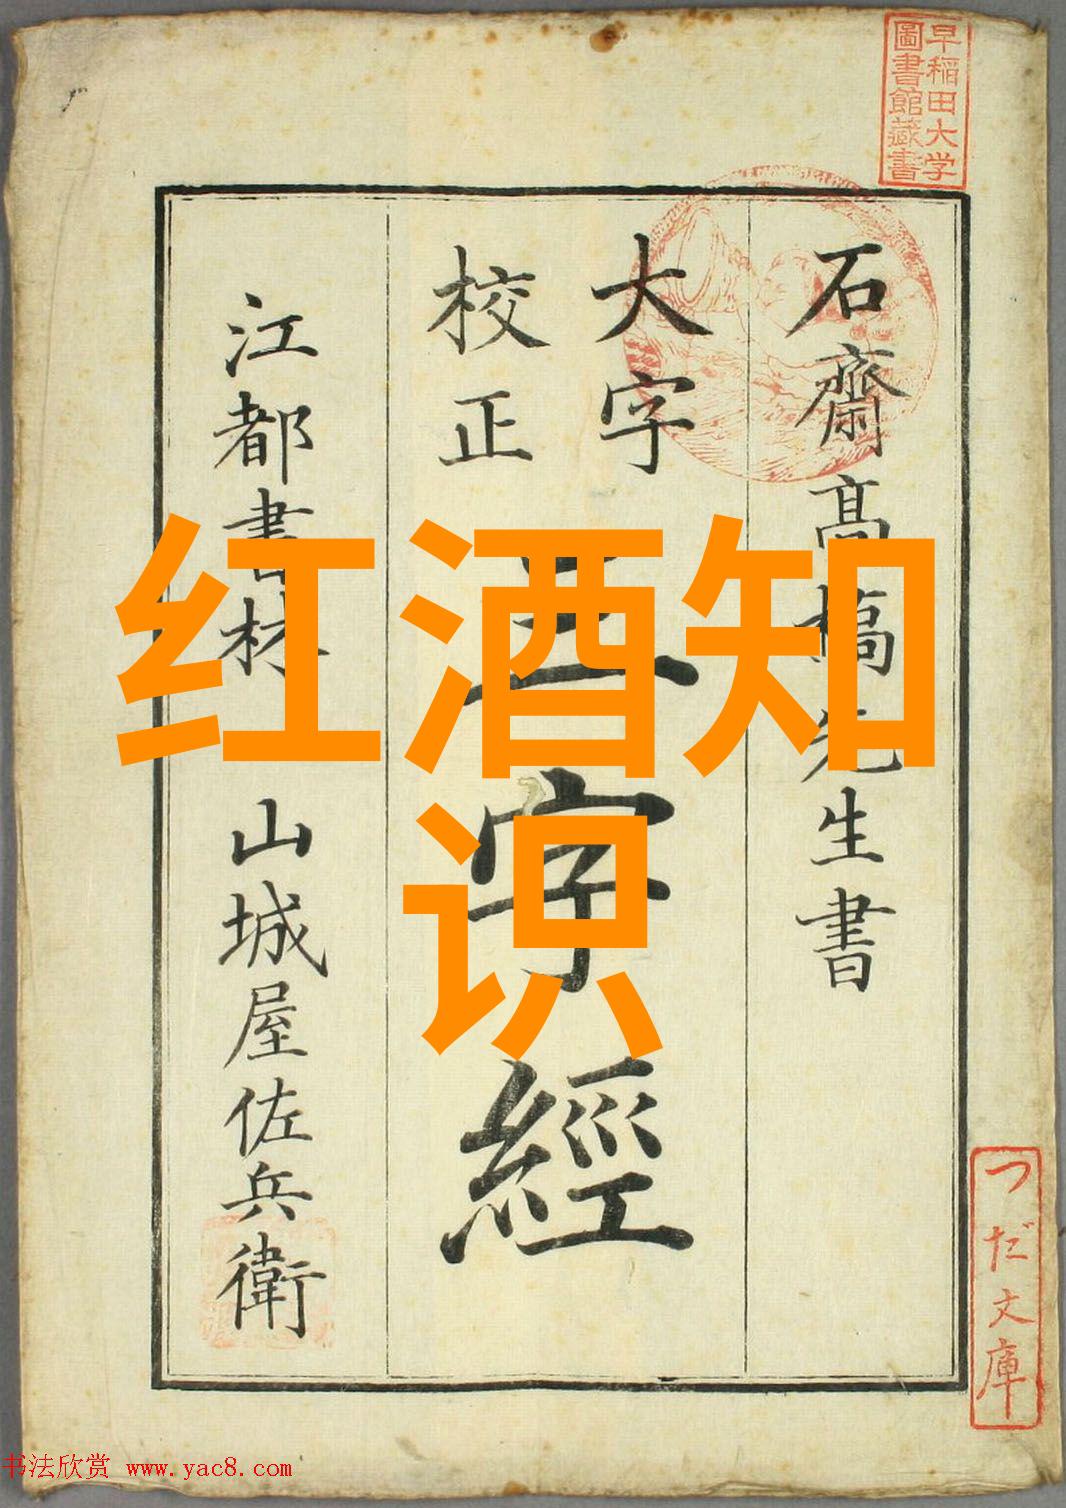 早稲田大学
圖書館藏書
石齋高橋先生書
大字
校正
三字經
江都書林 山城屋佐兵衛
つだ文庫
红酒知
识
书法欣赏 www.yac8.com